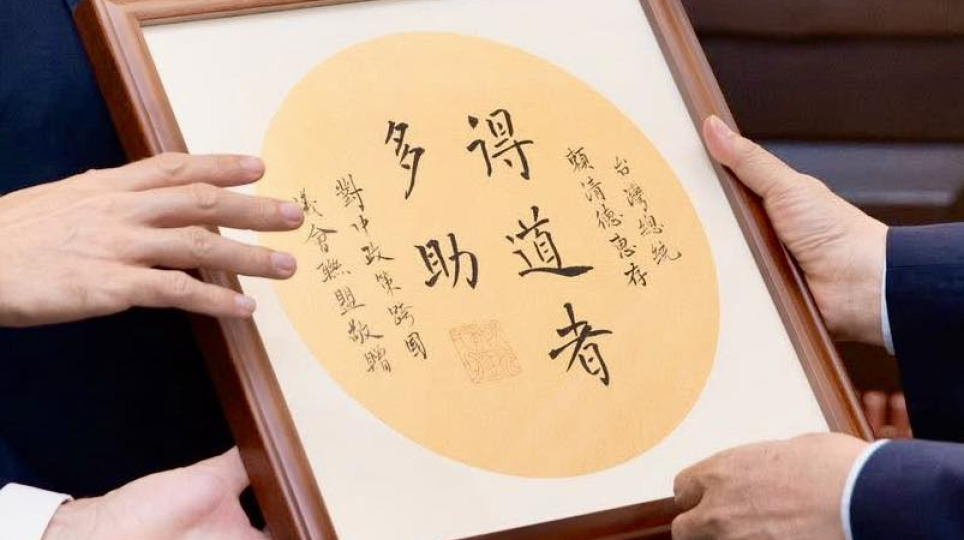 台灣總統
賴清德惠存
得道者
多助
對中政策跨国
議會聯盟敬贈